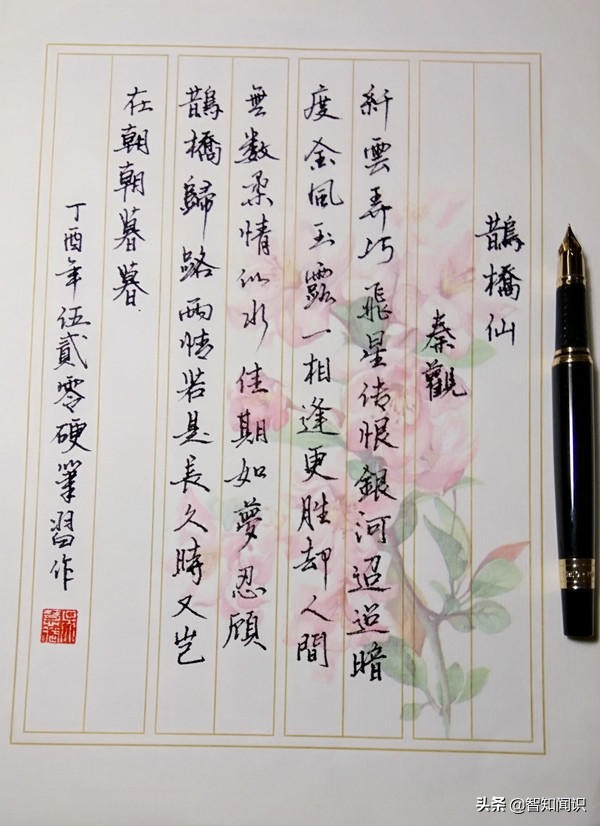 鵲橋仙
秦觀
纤雲弄巧飛星传恨銀河迢迢暗
度金風玉露一相逢更胜却人間
無数柔情似水佳期如夢忍顾
鵲橋歸路两情若是長久時又岂
在朝朝暮暮
丁酉年伍貳零硬筆習作
头条 @智知闻识